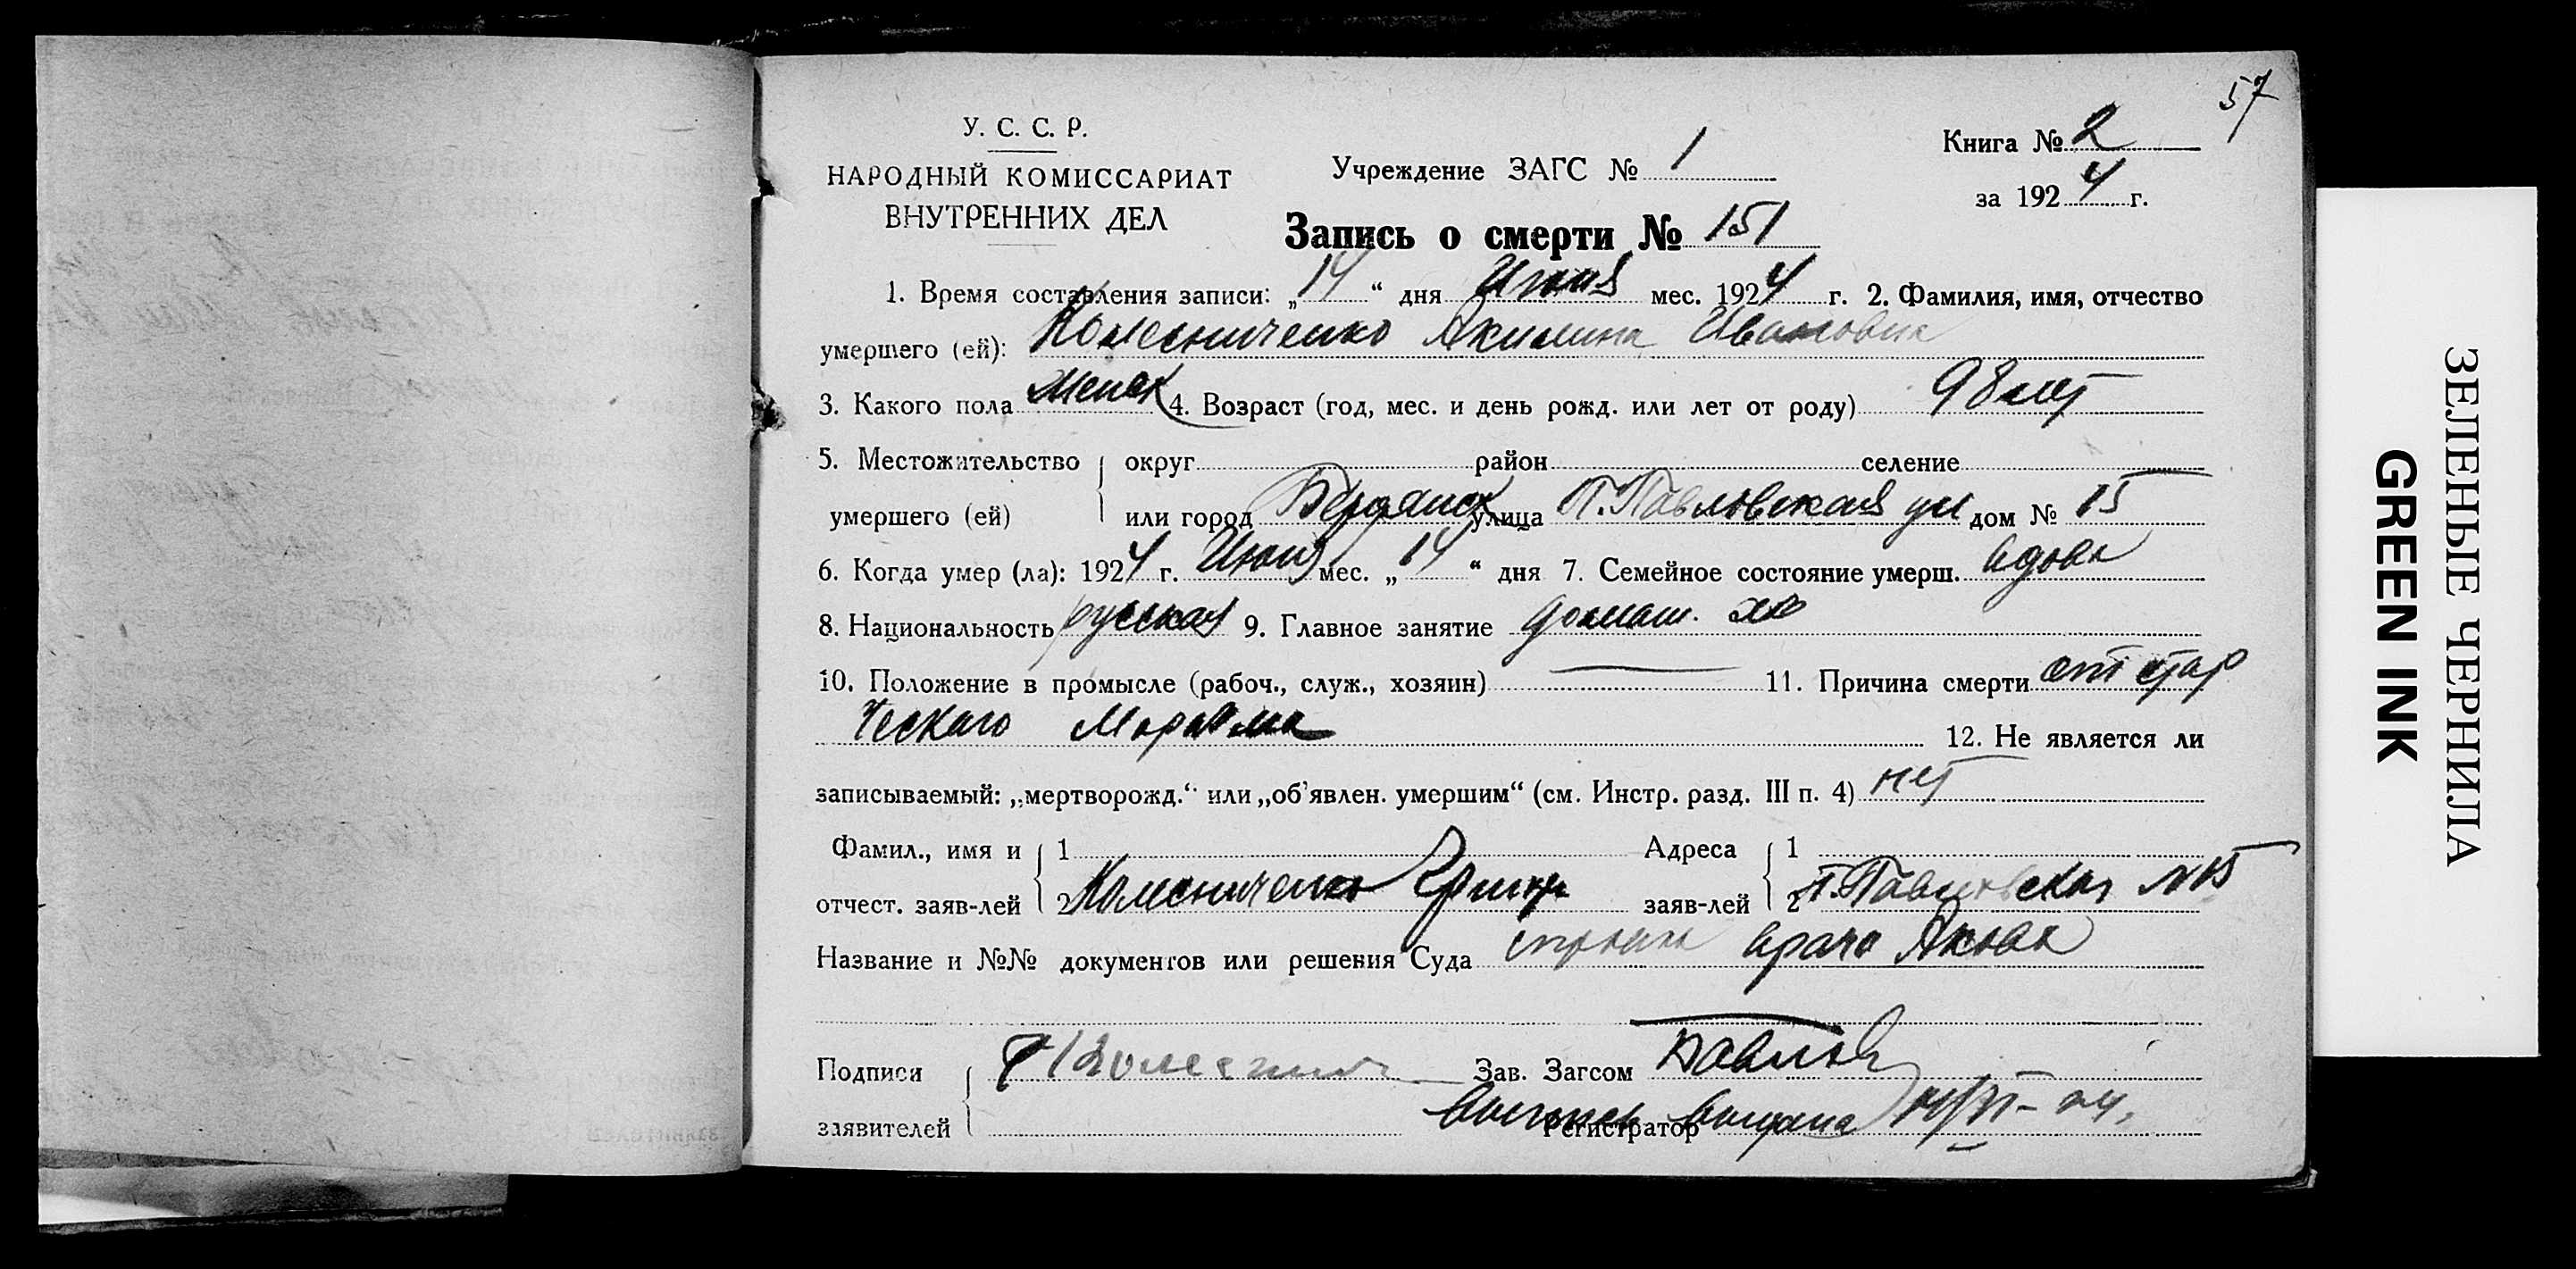 57
У. С. С. Р.
НАРОДНЫЙ КОМИССАРИАТ
ВНУТРЕННИХ ДЕЛ
Учреждение ЗАГС № 1
Книга № 2
за 1924 г.
Запись о смерти № 151
1. Время составления записи: „14“ дня Июня мес. 1924 г. 2. Фамилия, имя, отчество
умершего (ей): Колесниченко Акилина Ивановна
3. Какого пола Женск 4. Возраст (год, мес. и день рожд. или лет от роду) 98 лет
5. Местожительство округ район селение
умершего (ей) или город Бердянск улица П. Павловская ул дом № 15
6. Когда умер (ла): 1924 г. Июня мес. „14“ дня 7. Семейное состояние умерш. вдова
8. Национальность русская 9. Главное занятие домаш. хо
10. Положение в промысле (рабоч., служ., хозяин) — 11. Причина смерти от стар
ческаго Маразма
12. Не является ли
записываемый: „мертворожд.“ или „об'явлен. умершим“ (см. Инстр. разд. III п. 4) нет
Фамил., имя и 1 Адреса 1
отчест. заяв-лей 2 Колесниченко заяв-лей 2 П. Павловская № 15
Название и №№ документов или решения Суда врача
Подписи Зав. Загсом
заявителей Регистратор
ЗЕЛЕНЫЕ ЧЕРНИЛА
GREEN INK